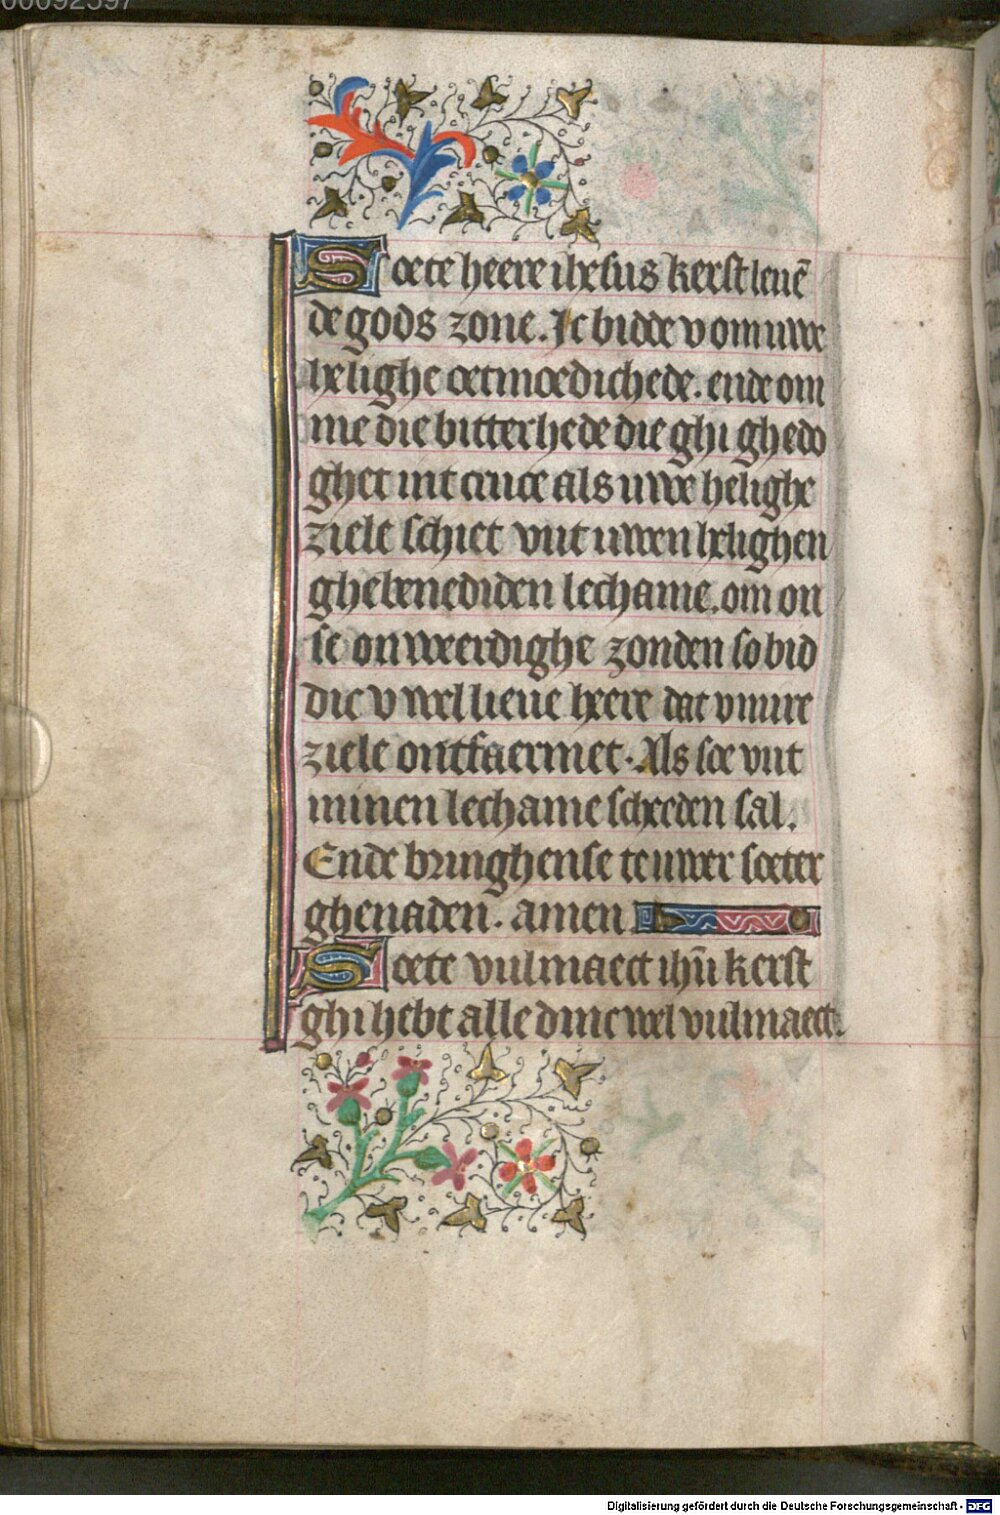 00092597
Soete heere ihesus kerst leuē
de gods zone. Ic bidde v om uwe
helighe oetmoedichede. ende om
me die bitterhede die ghi ghedo
ghet int cruce als uwe helighe
ziele schiet vut uwen helighen
ghebenediden lechame. om on
se onweerdighe zonden so bid
dic v wel lieue heere dat v mire
ziele ontfaermet. Als soe vut
minen lechame scheeden sal.
Ende bringhense te uwer soeter
ghenaden. amen
Soete vulmaect ihū kerst
ghi hebt alle dinc wel vulmaect.
Digitalisierung gefördert durch die Deutsche Forschungsgemeinschaft - DFG